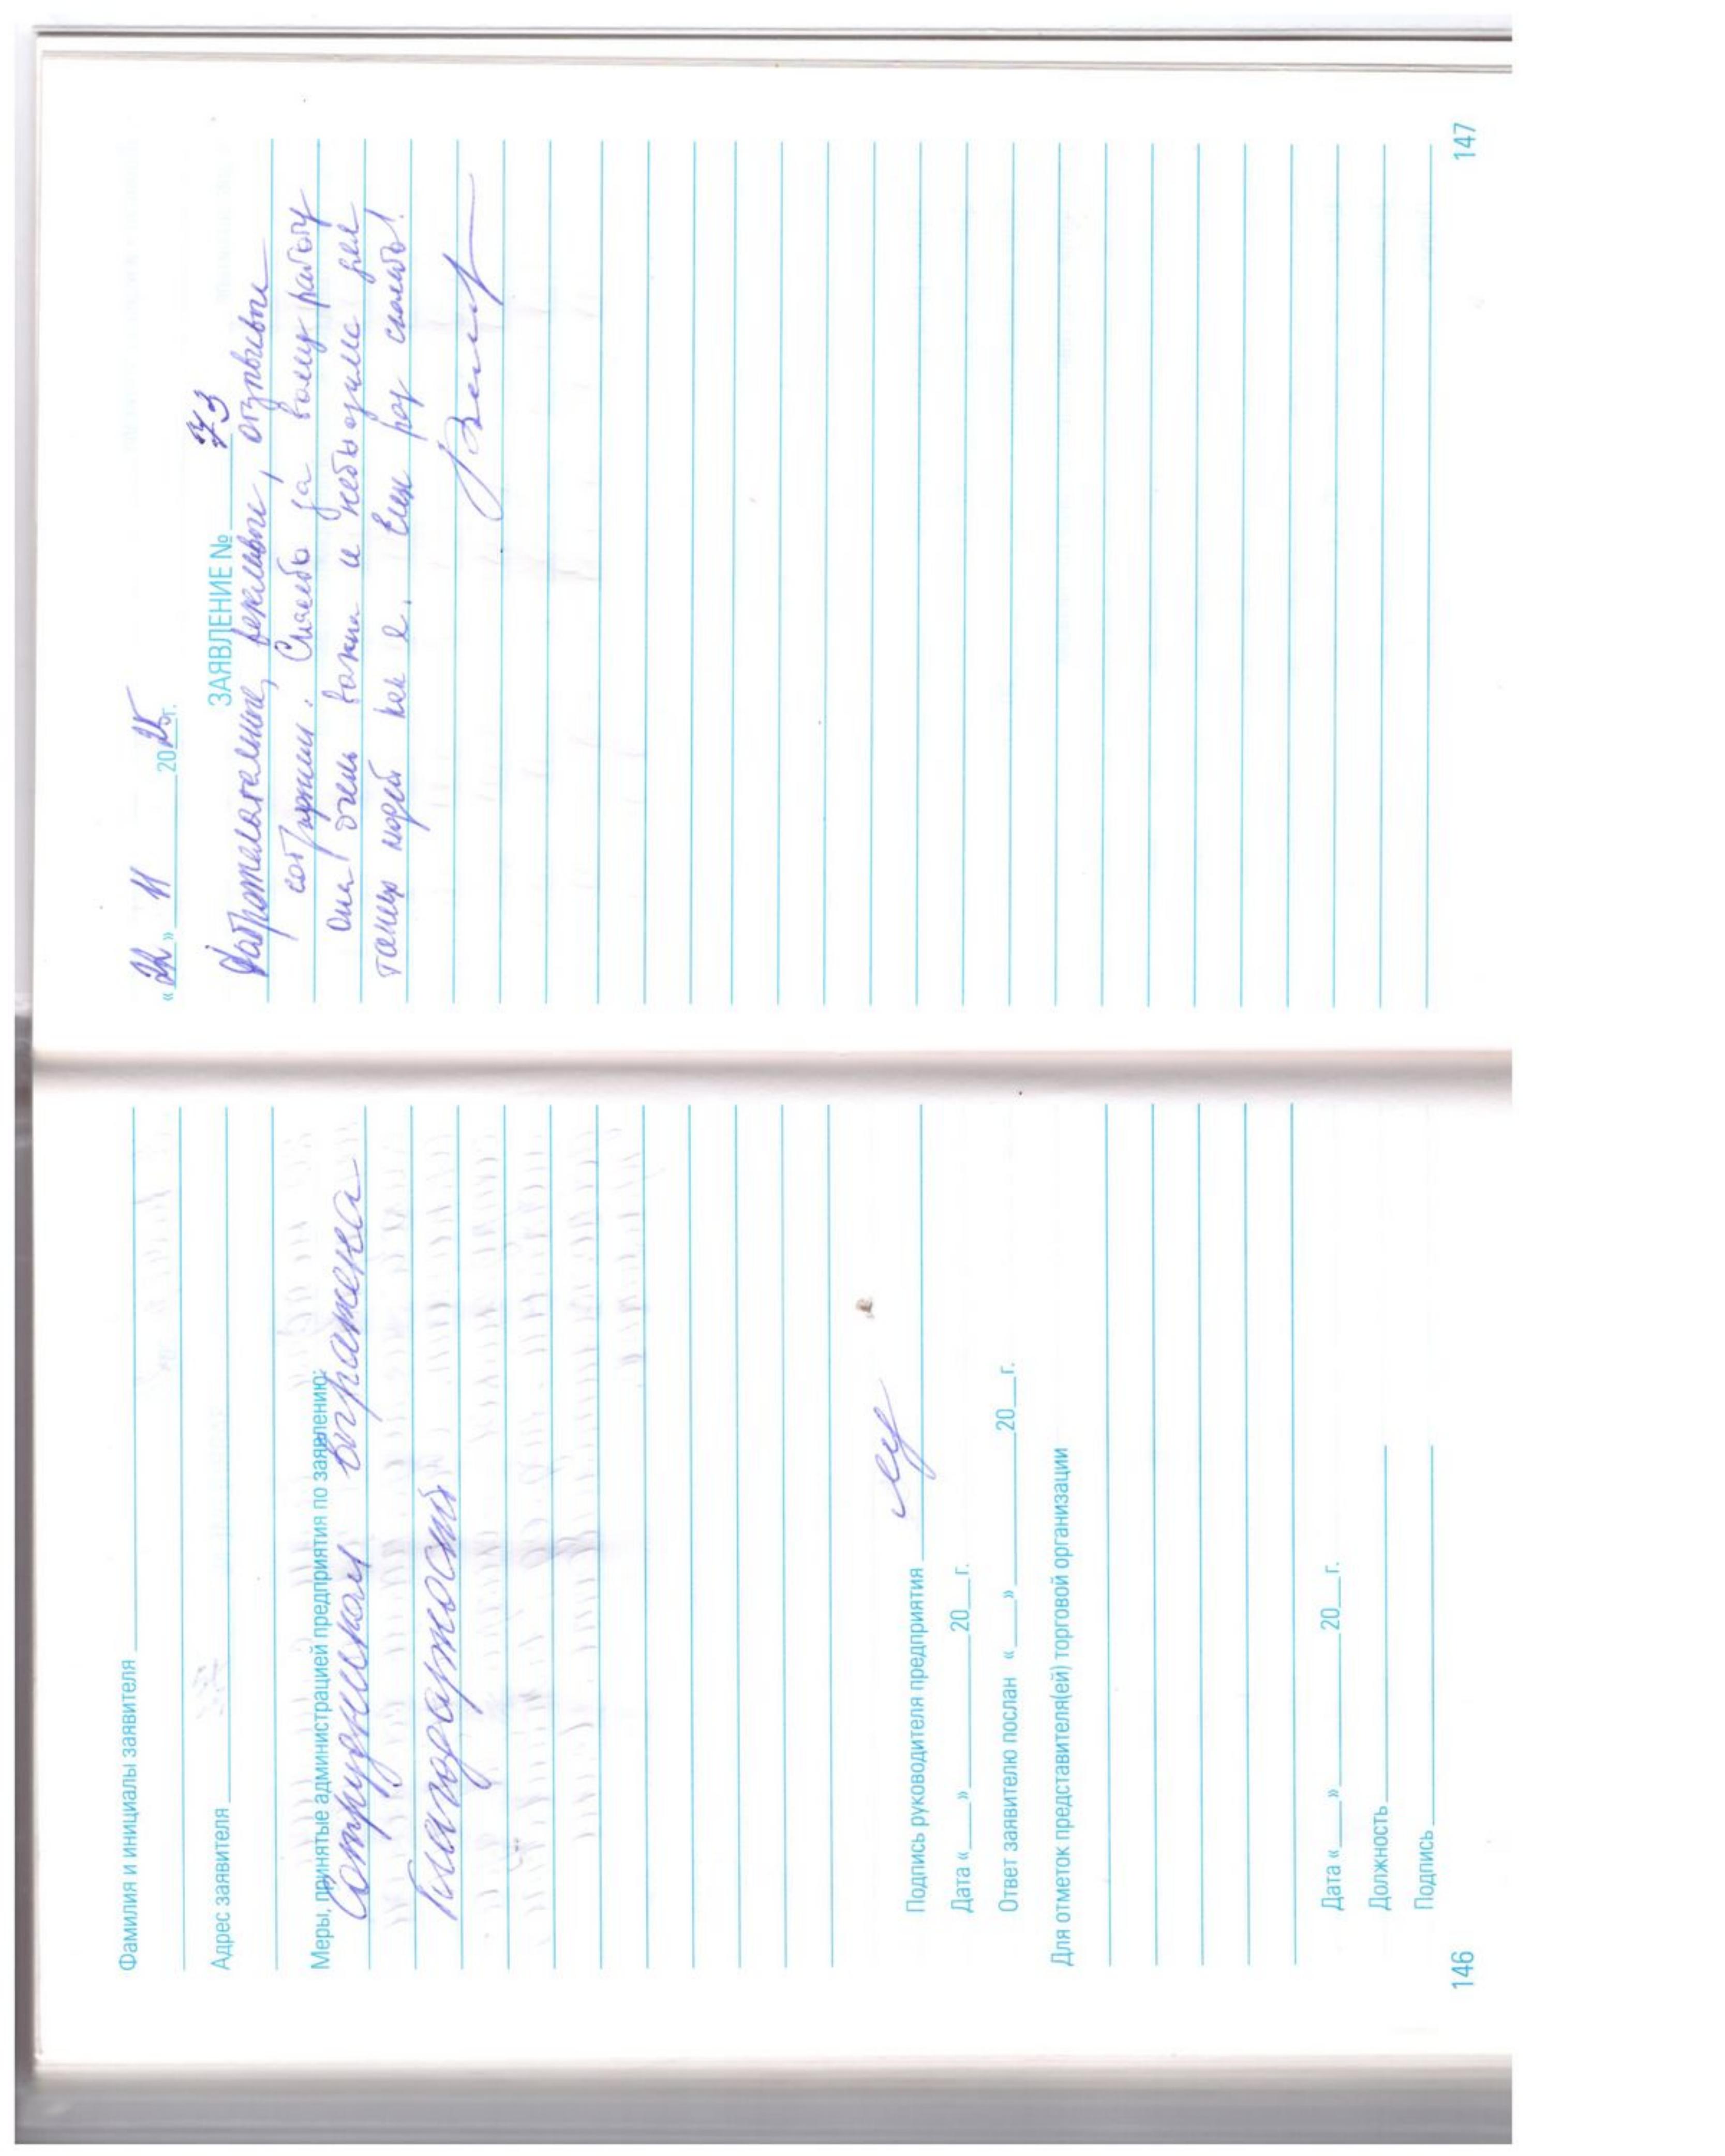 Фамилия и инициалы заявителя
Адрес заявителя
Меры, принятые администрацией предприятия по заявлению:
Сотрудникам выражена
благодарность
Подпись руководителя предприятия
Дата «___»________20__г.
Ответ заявителю послан «___»________20__г.
Для отметок представителя(ей) торговой организации
Дата «___»________20__г.
Должность
Подпись
146
«22» 11 2025г.
ЗАЯВЛЕНИЕ № 73
Доброжелательные, вежливые, отзывчивые
сотрудники. Спасибо за вашу работу
она очень важна и необходима для
таких людей как я. Еще раз спасибо!
147